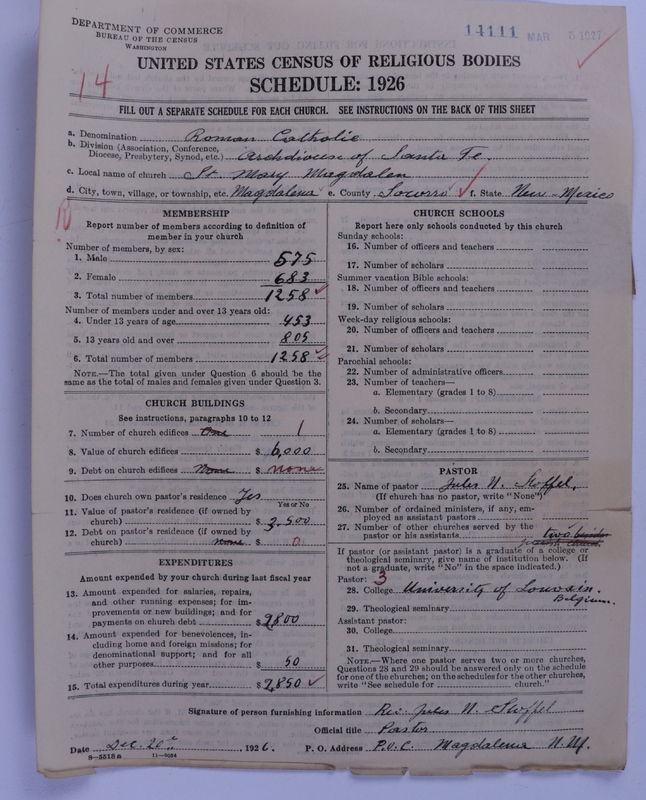 DEPARTMENT OF COMMERCE
BUREAU OF THE CENSUS
WASHINGTON
14111 MAR 5 1927
14
UNITED STATES CENSUS OF RELIGIOUS BODIES
SCHEDULE: 1926
FILL OUT A SEPARATE SCHEDULE FOR EACH CHURCH. SEE INSTRUCTIONS ON THE BACK OF THIS SHEET
a. Denomination Roman Catholic
b. Division (Association, Conference,
Diocese, Presbytery, Synod, etc.) Archdiocese of Santa Fe.
c. Local name of church St Mary Magdalen
d. City, town, village, or township, etc. Magdalena e. County Socorro f. State New-Mexico
MEMBERSHIP
Report number of members according to definition of
member in your church
Number of members, by sex:
1. Male 575
2. Female 683
3. Total number of members 1258
Number of members under and over 13 years old:
4. Under 13 years of age 453
5. 13 years old and over 805
6. Total number of members 1258
NOTE.—The total given under Question 6 should be the
same as the total of males and females given under Question 3.
CHURCH BUILDINGS
See instructions, paragraphs 10 to 12
7. Number of church edifices One 1
8. Value of church edifices $ 6,000
9. Debt on church edifices None $ none
10. Does church own pastor's residence Yes
Yes or No
11. Value of pastor's residence (if owned by
church) $ 2,500
12. Debt on pastor's residence (if owned by
church) none $ 0
EXPENDITURES
Amount expended by your church during last fiscal year
13. Amount expended for salaries, repairs,
and other running expenses; for im-
provements or new buildings; and for
payments on church debt $ 2800
14. Amount expended for benevolences, in-
cluding home and foreign missions; for
denominational support; and for all
other purposes $ 50
15. Total expenditures during year $ 2,850
CHURCH SCHOOLS
Report here only schools conducted by this church
Sunday schools:
16. Number of officers and teachers
17. Number of scholars
Summer vacation Bible schools:
18. Number of officers and teachers
19. Number of scholars
Week-day religious schools:
20. Number of officers and teachers
21. Number of scholars
Parochial schools:
22. Number of administrative officers
23. Number of teachers—
a. Elementary (grades 1 to 8)
b. Secondary
24. Number of scholars—
a. Elementary (grades 1 to 8)
b. Secondary
PASTOR
25. Name of pastor Jules N. Stoffel,
(If church has no pastor, write "None")
26. Number of ordained ministers, if any, em-
ployed as assistant pastors
27. Number of other churches served by the
pastor or his assistants two
church.
If pastor (or assistant pastor) is a graduate of a college or
theological seminary, give name of institution below. (If
not a graduate, write "No" in the space indicated.)
Pastor: 3
28. College University of Louvain.
Belgium.
29. Theological seminary
Assistant pastor:
30. College
31. Theological seminary
NOTE.—Where one pastor serves two or more churches,
Questions 28 and 29 should be answered only on the schedule
for one of the churches; on the schedules for the other churches,
write "See schedule for church."
Signature of person furnishing information Rev. Jules N. Stoffel
Official title Pastor
Date Dec. 20th, 1926. P. O. Address P.O.C. Magdalena N.M.
8—5518a 11—9054